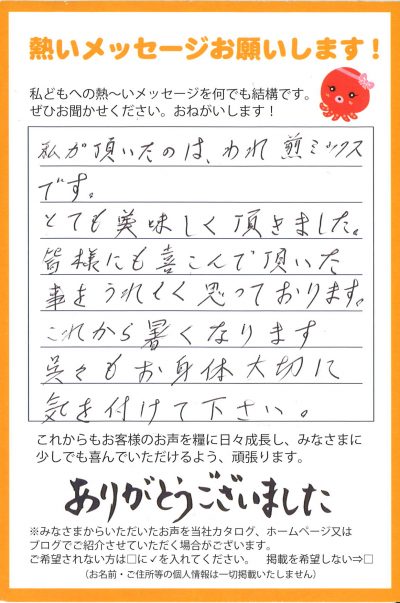 熱いメッセージお願いします！
私どもへの熱〜いメッセージを何でも結構です。
ぜひお聞かせください。おねがいします！
私が頂いたのは、われ煎ミックス
です。
とても美味しく頂きました。
皆様にも喜こんで頂いた
事をうれしく思っております。
これから暑くなります
呉々もお身体大切に
気を付けて下さい。
これからもお客様のお声を糧に日々成長し、みなさまに
少しでも喜んでいただけるよう、頑張ります。
ありがとうございました
※みなさまからいただいたお声を当社カタログ、ホームページ又は
ブログでご紹介させていただく場合がございます。
ご希望されない方は□に✓を入れてください。　掲載を希望しない⇒□
（お名前・ご住所等の個人情報は一切掲載いたしません）